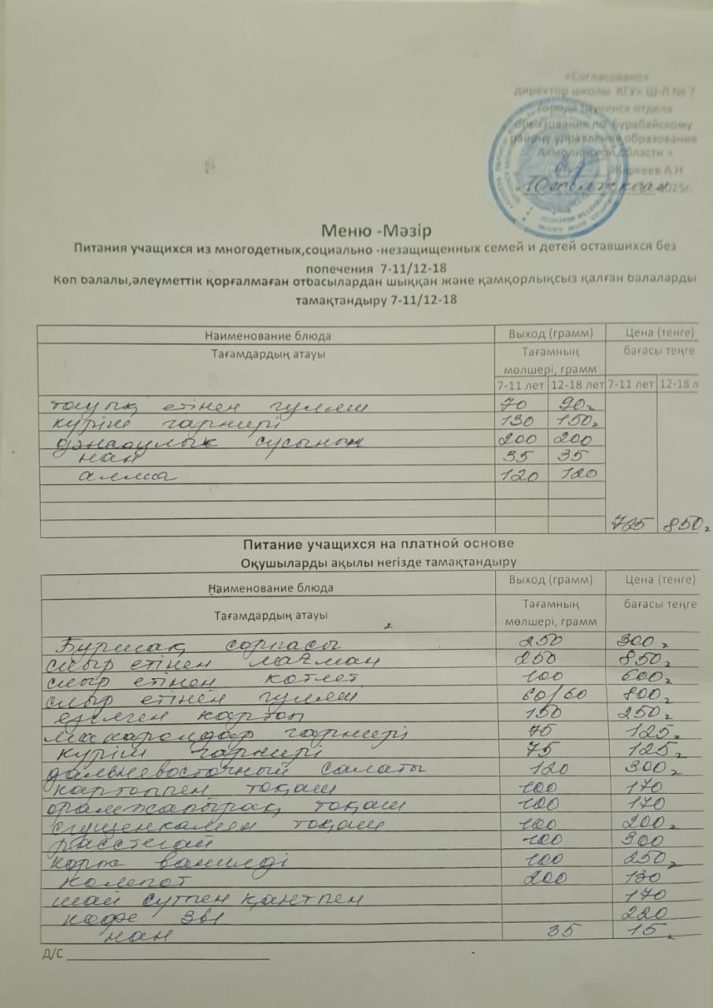 «Согласовано»
директор школы КГУ« Ш-Л № 7
города Щучинск отдела
образования по Бурабайскому
району управления образования
Акмолинской области »
Жаркеев А.Н
10 желтоксан 2025г.
Меню -Мәзір
Питания учащихся из многодетных,социально -незащищенных семей и детей оставшихся без
попечения 7-11/12-18
Көп балалы,әлеуметтік қорғалмаған отбасылардан шыққан және қамқорлықсыз қалған балаларды
тамақтандыру 7-11/12-18
Наименование блюда Выход (грамм) Цена (тенге)
Тағамдардың атауы Тағамның бағасы теңге
мөлшері, грамм
7-11 лет 12-18 лет 7-11 лет 12-18 л
тауық етінен гуляш 70 90г
күріш гарнері 130 150г
денсаулық сусыны 200 200
нан 35 35
алма 120 120
725 850г
Питание учащихся на платной основе
Оқушыларды ақылы негізде тамақтандыру
Наименование блюда Выход (грамм) Цена (тенге)
Тағамдардың атауы Тағамның бағасы теңге
мөлшері, грамм
Бұршақ сорпасы 250 300г
сиыр етінен лағман 250 850г
сиыр етінен котлет 100 600г
сиыр етінен гуляш 60/60 800г
езілген картоп 150 250г
макарондар гарнері 75 125г
күріш гарнері 75 125г
дальневосточный салаты 120 300г
картоппен тоқаш 100 170
орамжапырақ тоқаш 100 170
сгущенкамен тоқаш 100 200г
расстегай 100 300
корж ванилді 100 250г
компот 200 130
шай сүтпен қантпен 170
кофе 3в1 220
нан 35 15г
Д/С